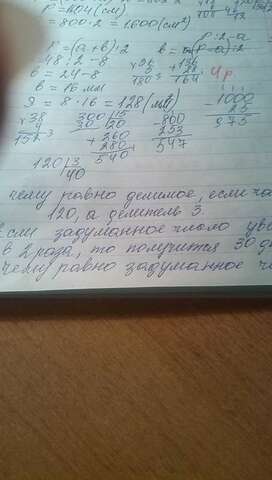 P=404(см)
=800·2=1600(см²)
P=(a+b)·2
P:2-a
b=(P-a)·2
48:2-8
b=24-8
b=16 мм
S=8·16=128(мм)
4р.
38
152
300|15
30 20
+260
280
540
-800
253
547
-1000
25
975
36
180
+136
28
164
120|3
40
чему равно делимое, если ча
120, а делитель 3.
сли задуманное число уве
в 2 раза, то получится 30 д
чему равно задуманное чи